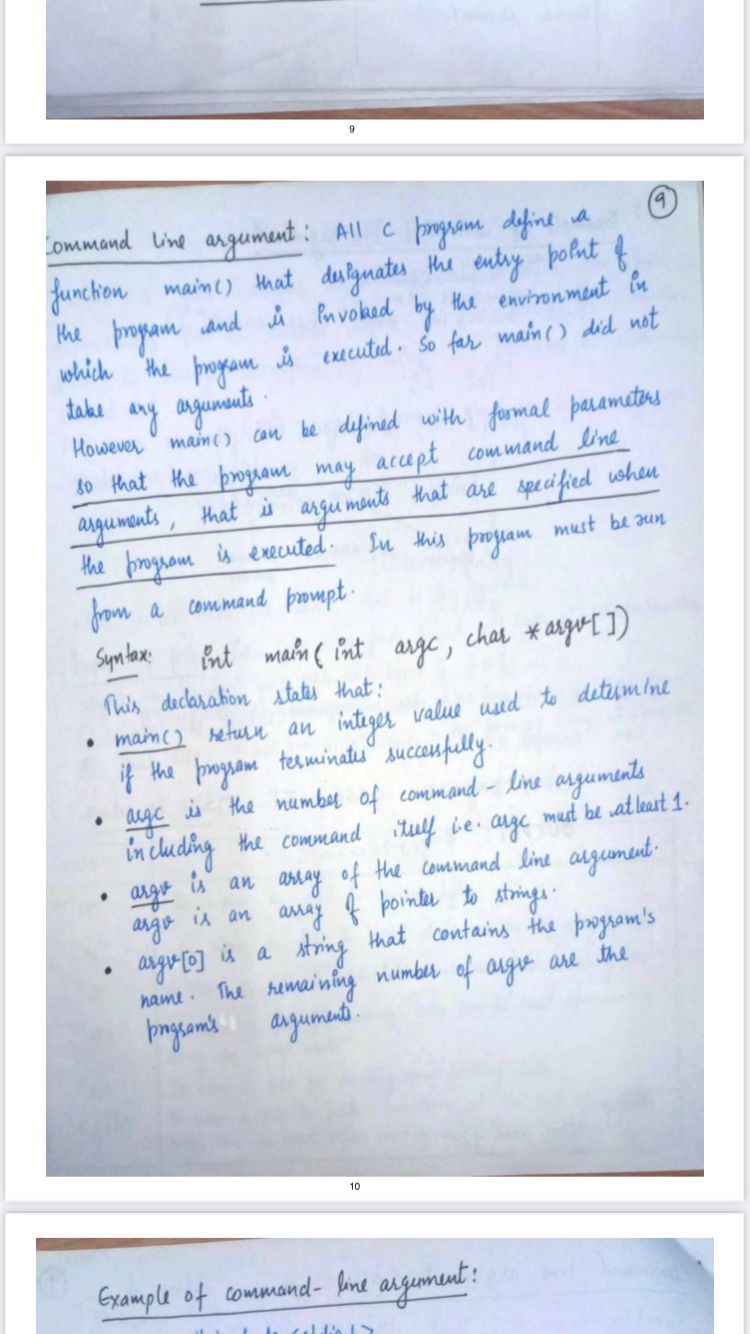 9
9
Command line argument: All C program define a
function main() that designates the entry point of
the program and is invoked by the environment in
which the program is executed. So far main() did not
take any arguments.
However main() can be defined with formal parameters
so that the program may accept command line
arguments, that is arguments that are specified when
the program is executed. In this program must be run
from a command prompt.
Syntax: int main( int argc, char *argv[])
This declaration states that:
• main() return an integer value used to determine
if the program terminates successfully.
• argc is the number of command line arguments
including the command itself i.e. argc must be at least 1.
• argv is an array of the command line argument.
argv is an array of pointer to strings.
• argv[0] is a string that contains the program's
name. The remaining number of argv are the
program's arguments.
10
Example of command-line argument: